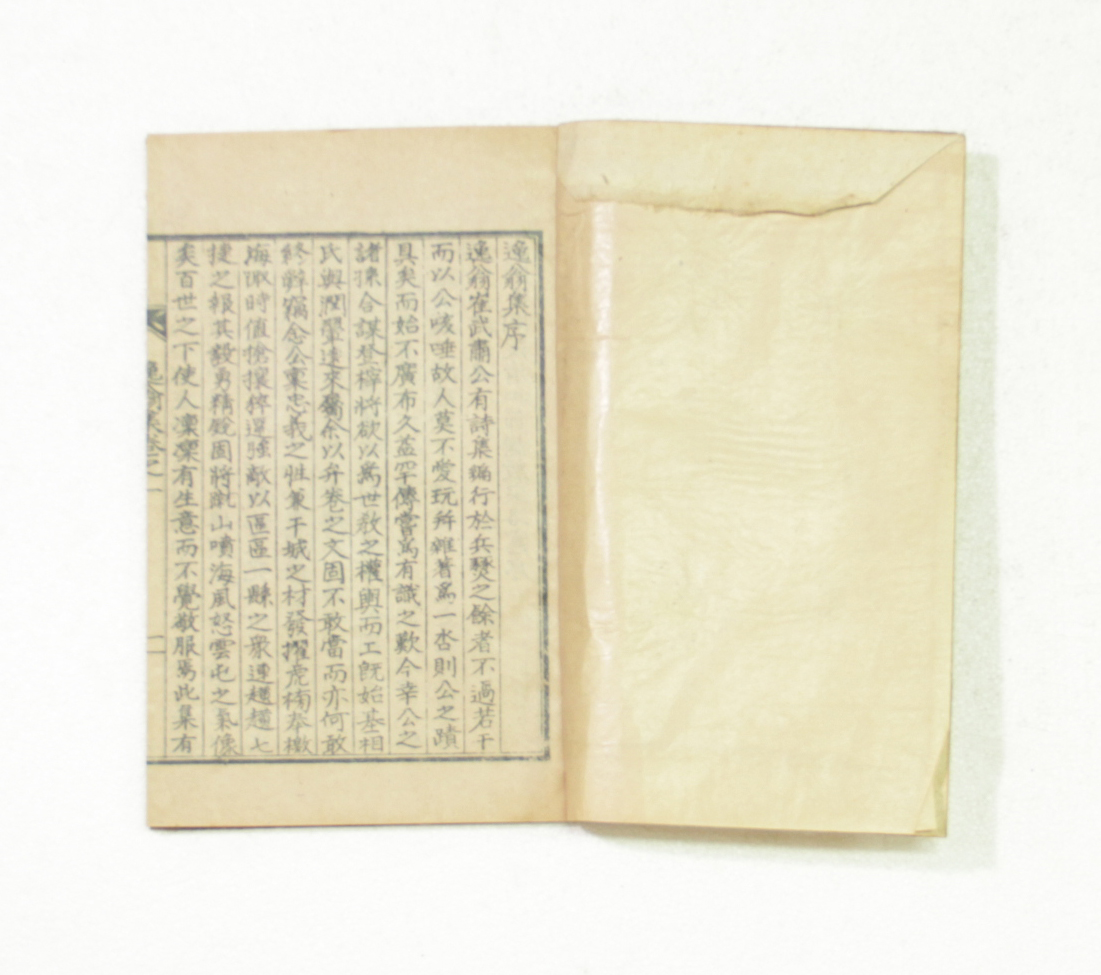 逸翁集序
逸翁崔武肅公有詩集編行於兵燹之餘者不過若干
而以公咳唾故人莫不愛玩幷雜著爲一呇則公之蹟
具矣而始不廣布久益罕傳嘗爲有識之歎今幸公之
諸孫合謀登梓將欲以爲世敎之權輿而工旣始基相
氏與潤鞏遠來屬余以弁卷之文固不敢當而亦何敢
終辭竊念公稟忠義之性兼干城之材發擢虎榜奉檄
海陬時值搶攘猝逞强敵以區區一縣之衆連趨趨七
捷之報其毅勇精銳固將蹴山噴海風怒雲屯之氣像
矣百世之下使人凜凜有生意而不覺斂服焉此集有
逸翁集卷之一